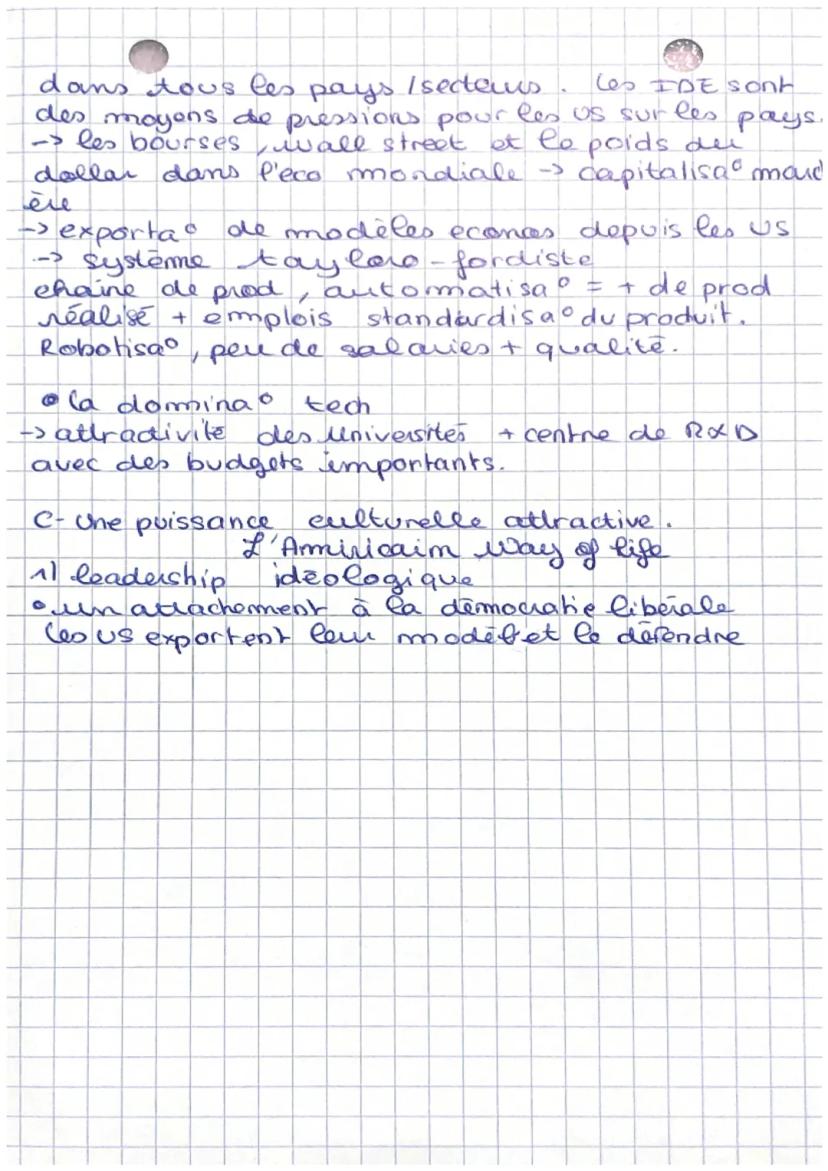 dans tous les pays / secteurs. Les IDE sont
des moyens de pressions pour les US sur les pays.
-> les bourses, wall street et le poids du
dollar dans l'eco mondiale -> capitalisa°
ère
-> exporta° de modèles econos depuis les US
-> système tayloro-fordiste
chaine de prod, automatisa° = + de prod
réalisé + emplois standardisa° du produit.
Robotisa°, peu de salaries + qualité.
• la domina° tech
-> attractivité des Universités + centre de R&D
avec des budgets importants.
C- Une puissance culturelle attractive.
L'Amiricaim Way of life
1) leadership idéologique
• un attachement à la démocratie libérale
les US exportent leur modèl et le défendre